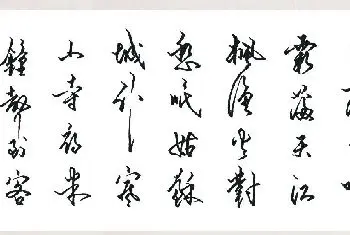 霜滿天江
楓漁火對
愁眠姑蘇
城外寒
山寺夜半
鐘聲到客